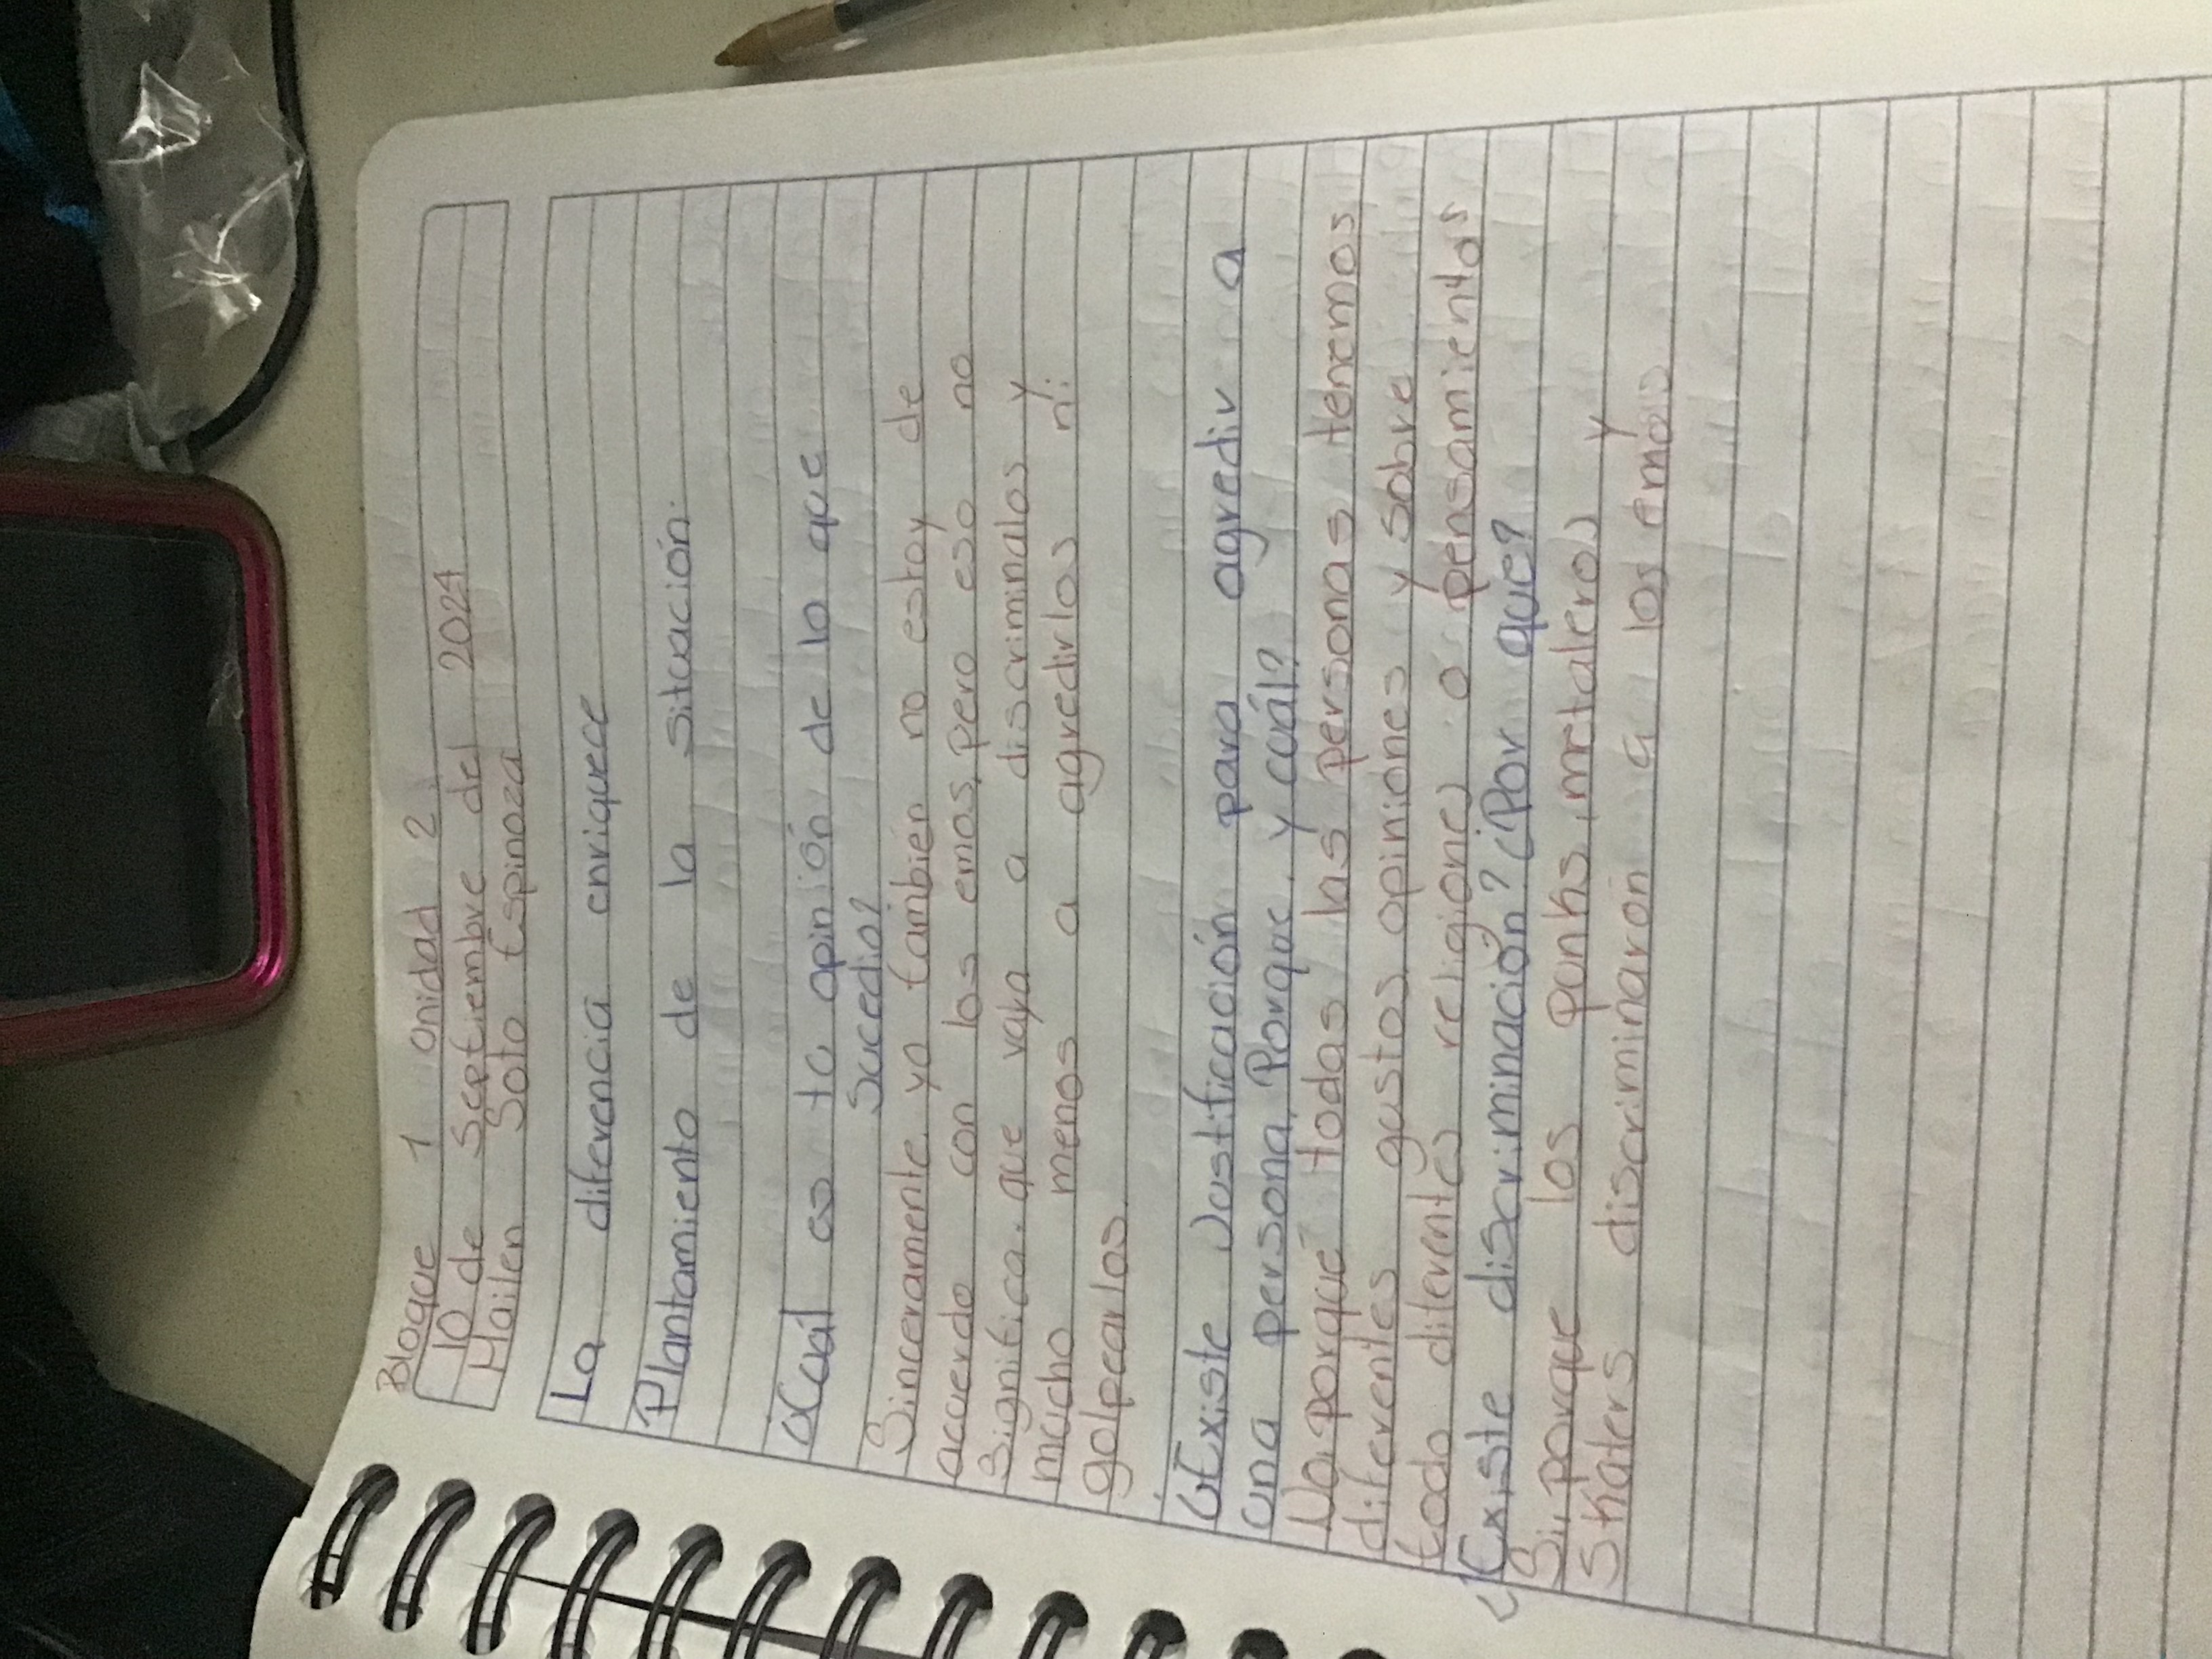 Bloque 1 unidad 2
10 de Septiembre del 2024
Hailen Soto Espinoza
La diferencia enriquece
Plantamiento de la situación.
¿Cuál es tu opinión de lo que
Sucedio?
Sinceramente, yo también no estoy de
acuerdo con los emos, pero eso no
significa. que vaya a discriminalos y
mucho menos a agredirlos ni
golpearlos.
¿Existe Justificación para agredir a
una persona, Porque, y cuál?
No, porque todas las personas tenemos
diferentes gustos, opiniones y sobre
todo diferentes religiones o pensamientos
¿Existe discriminación? ¿Por que?
Si, porque los punks, metaleros y
skaters discriminaron a los emos